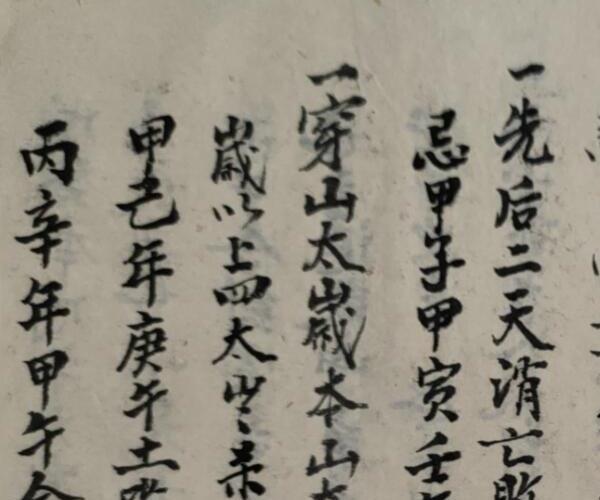 一先后二天消亡
忌甲子甲寅壬
一穿山太歲本山太
歲以上四太岁
甲己年庚午土
丙辛年甲午金